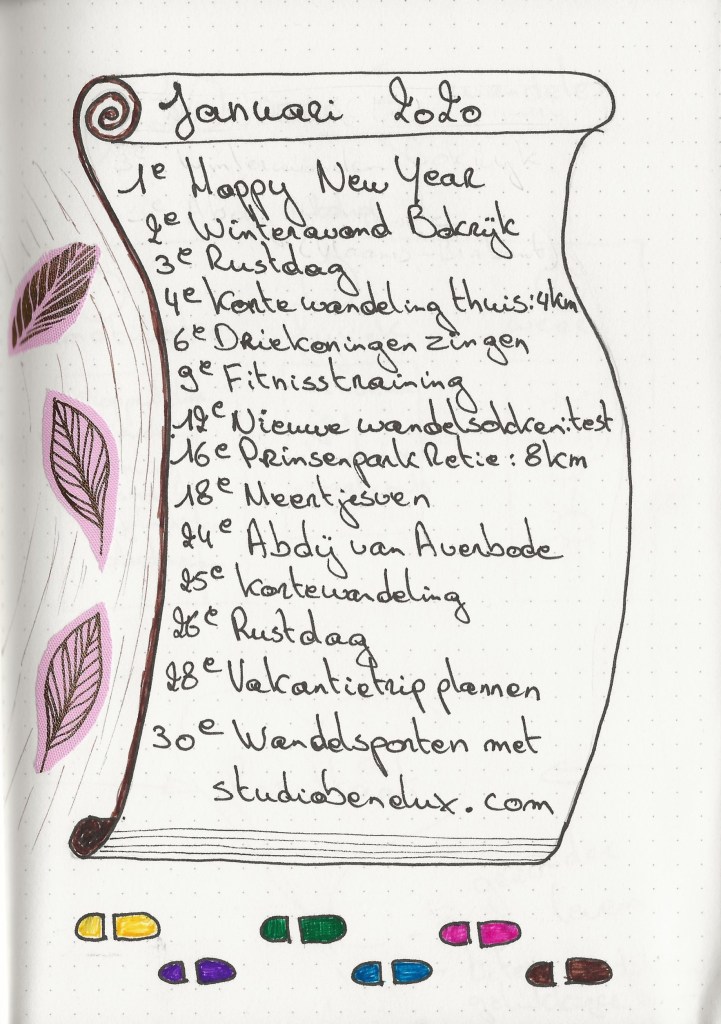 Januari 2020
1e Happy New Year
2e Winteravond Bokrijk
3e Rustdag
4e Korte wandeling thuis: 4km
6e Driekoningen zingen
9e Fitnisstraining
12e Nieuwe wandelsokken: test
16e Prinsenpark Retie: 8km
18e Meertjesven
24e Abdij van Averbode
25e korte wandeling
26e Rustdag
28e Vakantietrip plannen
30e Wandelsporten met
studiobenelux.com